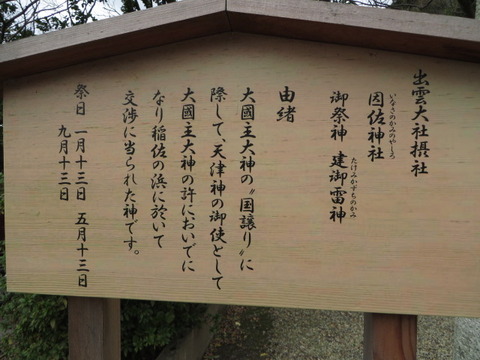 出雲大社摂社
因佐神社
いなさのかみのやしろ
御祭神 建御雷神
たけみかずちのかみ
由緒
大國主大神の〝国譲り〟に
際して、天津神の御使として
大國主大神の許においでに
なり稲佐の浜に於いて
交渉に当られた神です。
祭日 一月十三日 五月十三日
九月十三日